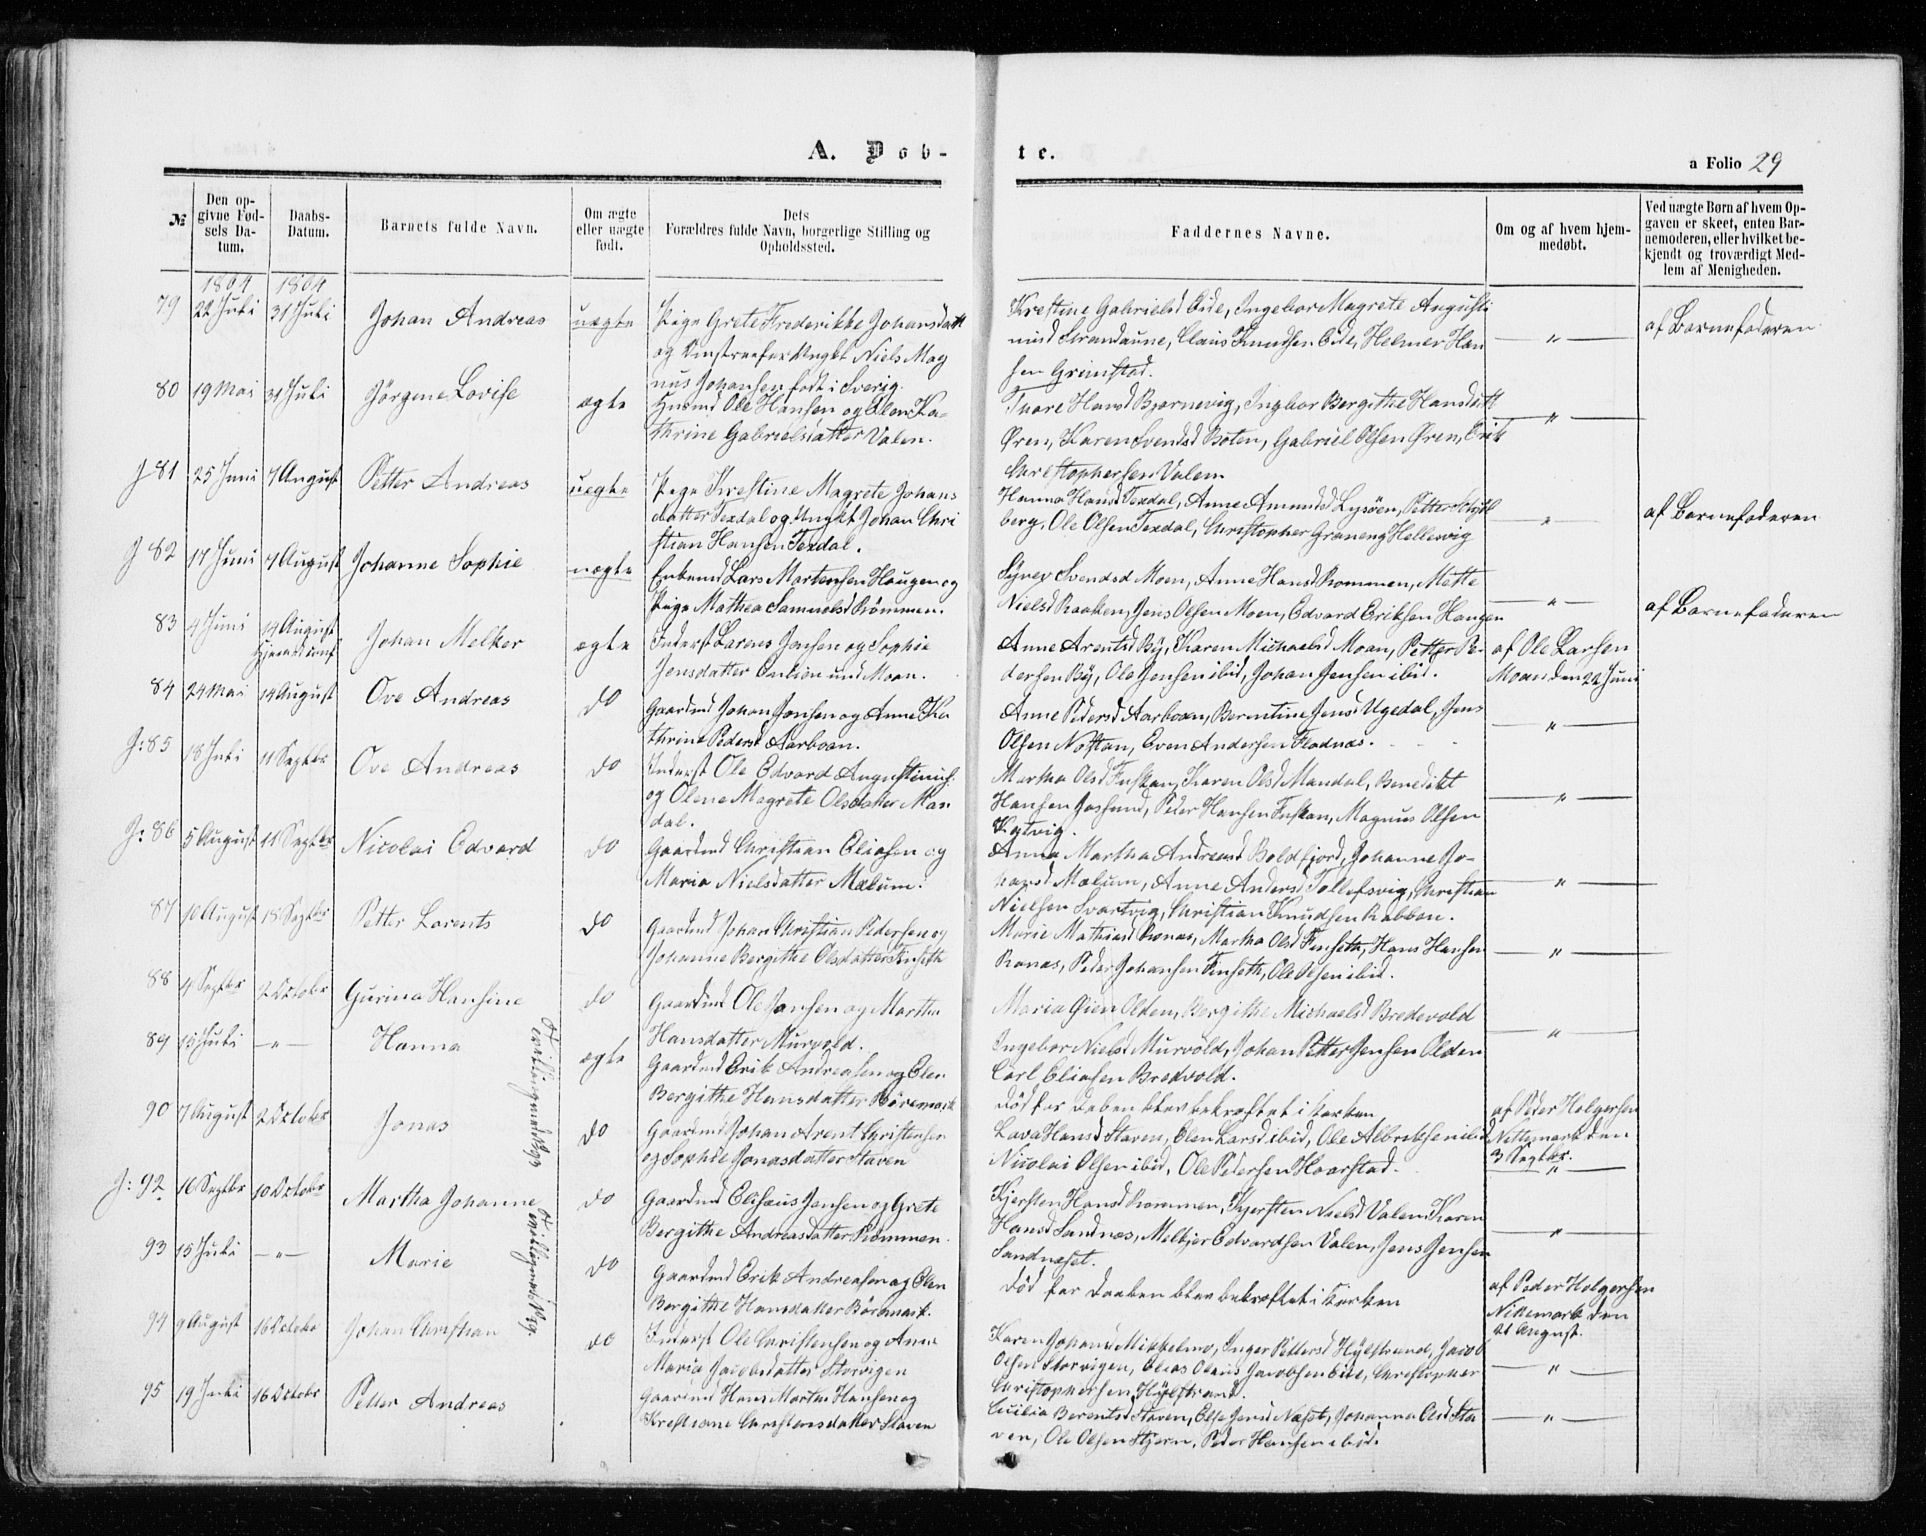 A. Døb-
te.
a Folio 29
№
Den op-
givne Fød-
sels Da-
tum.
Daabs-
Datum.
Barnets fulde Navn.
Om ægte
eller uægte
født.
Dets
Forældres fulde Navn, borgerlige Stilling og
Opholdssted.
Faddernes Navne.
Om og af hvem hjem-
medøbt.
Ved uægte Børn af hvem Op-
gaven er skeet, enten Bar-
nemoderen, eller hvilket be-
kjendt og troværdigt Med-
lem af Menigheden.
1864 1864
79 22 Juli 31 Juli Johan Andreas uægte
Pige Grete Frederikke Johansdatt
og Ungkt Niels Mag
nus Johansen født i Sverig.
Krestine Gabrielsd Eide, Ingebor Magrete Augusti
nusd Strandaune, Claus Knudsen Eide, Helmer Han
sen Grimstad.
— " —
af Barnefaderen.
80 19 Mai 31 Juli Jørgene Lovise ægte
Husmd Ole Hansen og Elen Ka-
thrine Gabrielsdatter Valen.
Tvore Hansd Bjørnevig, Ingbor Bergithe Hansdatt
Øren, Karen Svendsd Boten, Gabriel Olsen Øren, Erik
Christophersen Valen
— " —
J 81 25 Juni 7 August Petter Andreas uægte
Pige Krestine Magrete Johans
datter Texdal og Ungkt Johan Chri
stian Hansen Texdal.
Hanna Hansd Texdal, Anne Amundsd Lysøen, Petter
berg, Ole Olsen Texdal, Christopher Graneng Hellesvig
— " —
af Barnefaderen
J 82 17 Juni 7 August Johanne Sophie uægte
Enkemd Lars Martensen Haugen og
Pige Mathea Samuelsd Rømmen.
Syver Svendsd Moen, Anne Hansd Rommen, Mette
Nielsd Raaken, Jens Olsen Moen, Edvard Eriksen Haugen
— " —
af Barnefaderen
83 4 Juni 14 August Johan Melker ægte
Hjemmedøbt
Inderst Larens Jensen og Sophie
Jensdatter und Moan.
Anne Arentsd By, Karen Michaelsd Moan, Petter Pe-
dersen By, Ole Jensen ibid, Johan Jensen ibid.
af Ole Larsen
Moan den 22 Juni
84 24 Mai 14 August Ove Andreas do
Gaardmd Johan Jensen og Anne Ka
thrine Pedersd Aarboen.
Anne Pedersd Aarboen, Berentine Jensd Ugedal, Jens
Olsen Nøstan, Even Andersen Flodnæs.
— " —
J: 85 18 Juli 11 Septbr Ove Andreas do
Inderst Ole Edvard Augustinus.
og Olene Magrete Olsdatter Man
dal.
Martha Olsd Fuskan, Karen Olsd Mandal, Benedikt
Hansen Jøssund, Peder Hansen Fuskan, Magnus Olsen
— " —
J: 86 5 August 11 Septbr Nicolai Edvard do
Gaardmd Christian Eliasen og
Maria Nielsdatter Mælum.
Anna Martha Andreasd Boldfjord, Johanne Jo-
hansd Mælum, Anne Andersd Tollefsvig, Christian
Nielsen Svartvig, Christian Knudsen Rabben.
— " —
87 10 August 18 Septbr Petter Lorents do
Gaardmd Johan Christian Pedersen og
Johanne Bergithe Olsdatter Finseth
Marie Mathiasd Ronæs, Martha Olsd Finseth, Hans Hansen
Ronæs, Peder Johansen Finseth, Ole Olsen ibid.
— " —
88 4 Septbr 2 Octobr Gurina Hansine do
Gaardmd Ole Jensen og Martha
Hansdatter Murvold.
Maria Olden, Bergithe Michaelsd Bredevold
Ingebor Nielsd Murvold, Johan Petter Jensen Olden
Carl Eliasen Bredvold.
— " —
89 15 Juli — " — Hanna ægte
Tvillingmed Sg 93
Gaardmd Erik Andreasen og Elen
Bergithe Hansdatter Børemark
Død før Daben blev bekræftet i Kirken
af Peder Holgersen
Nettemark den
3 Septbr.
90 7 August 2 Octobr Jonas do
Gaardmd Johan Arent Christensen
og Sophie Jonasdatter Staven
Lava Hansd Staven, Elen Larsd ibid, Ole Albriktsen ibid
Nicolai Olsen ibid, Ole Petersen Haarstad.
— " —
J: 92 16 Septbr 10 Octobr Martha Johanne do
Gaardmd Elisæus Jensen og Grete
Bergithe Andreasdatter Rømmen.
Kjersten Hansd Rommen, Kjersten Nielsd Valen, Karen
Hansd Sandnæs, Melkjer Edvardsen Valen, Jens Jensen
Sandnæset.
— " —
93 15 Juli — " — Marie do
Tvillingmed Sg
Gaardmd Erik Andreasen og Elen
Bergithe Hansdatter Børmark.
Død før Daaben blev bekræftet i Kirken
af Peder Holgersen
Nettemark den
21 August.
94 9 August 16 Octobr Johan Christian do
Inderst Ole Christensen og Anne
Maria Jacobsdatter Storvigen
Karen Johansd Mikkelmo, Inger Pettersd Hylstrand, Jacob
Olsen Storvigen, Elias Olaus Jacobsen Eide, Christopher
Christophersen Hylstrand.
— " —
95 19 Juli 16 Octobr Petter Andreas
Gaardmd Hans Martin Hansen og
Krestiane Christensdatter Staven
Cecilia Berentsd Staven, Else Jensd Næset, Johanna Olsd Sta
ven, Ole Olsen Stjern, Peder Hansen ibid.
— " —